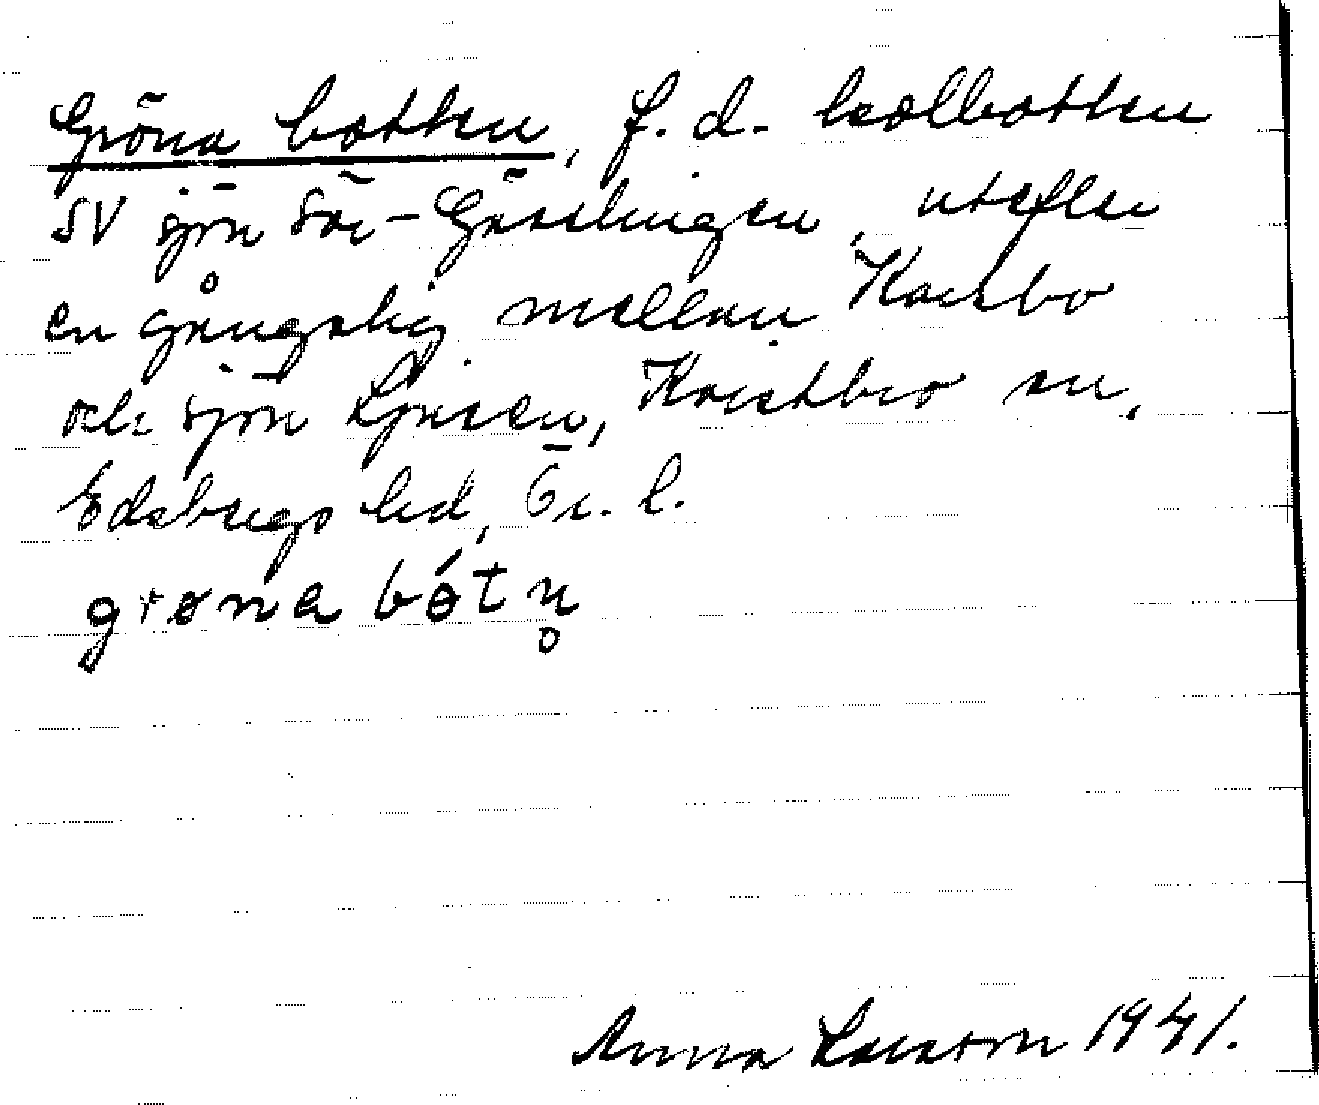 Gröna botten, f.d. kolbotten
SV sjön Sör-Gäselingen, utefter
en gångstig mellan Karsbo
och sjön Ljusen, Karsbo an.
Edsbergs hd, Ör. l.
grøna bótn̥
Anna Larsson 1941.